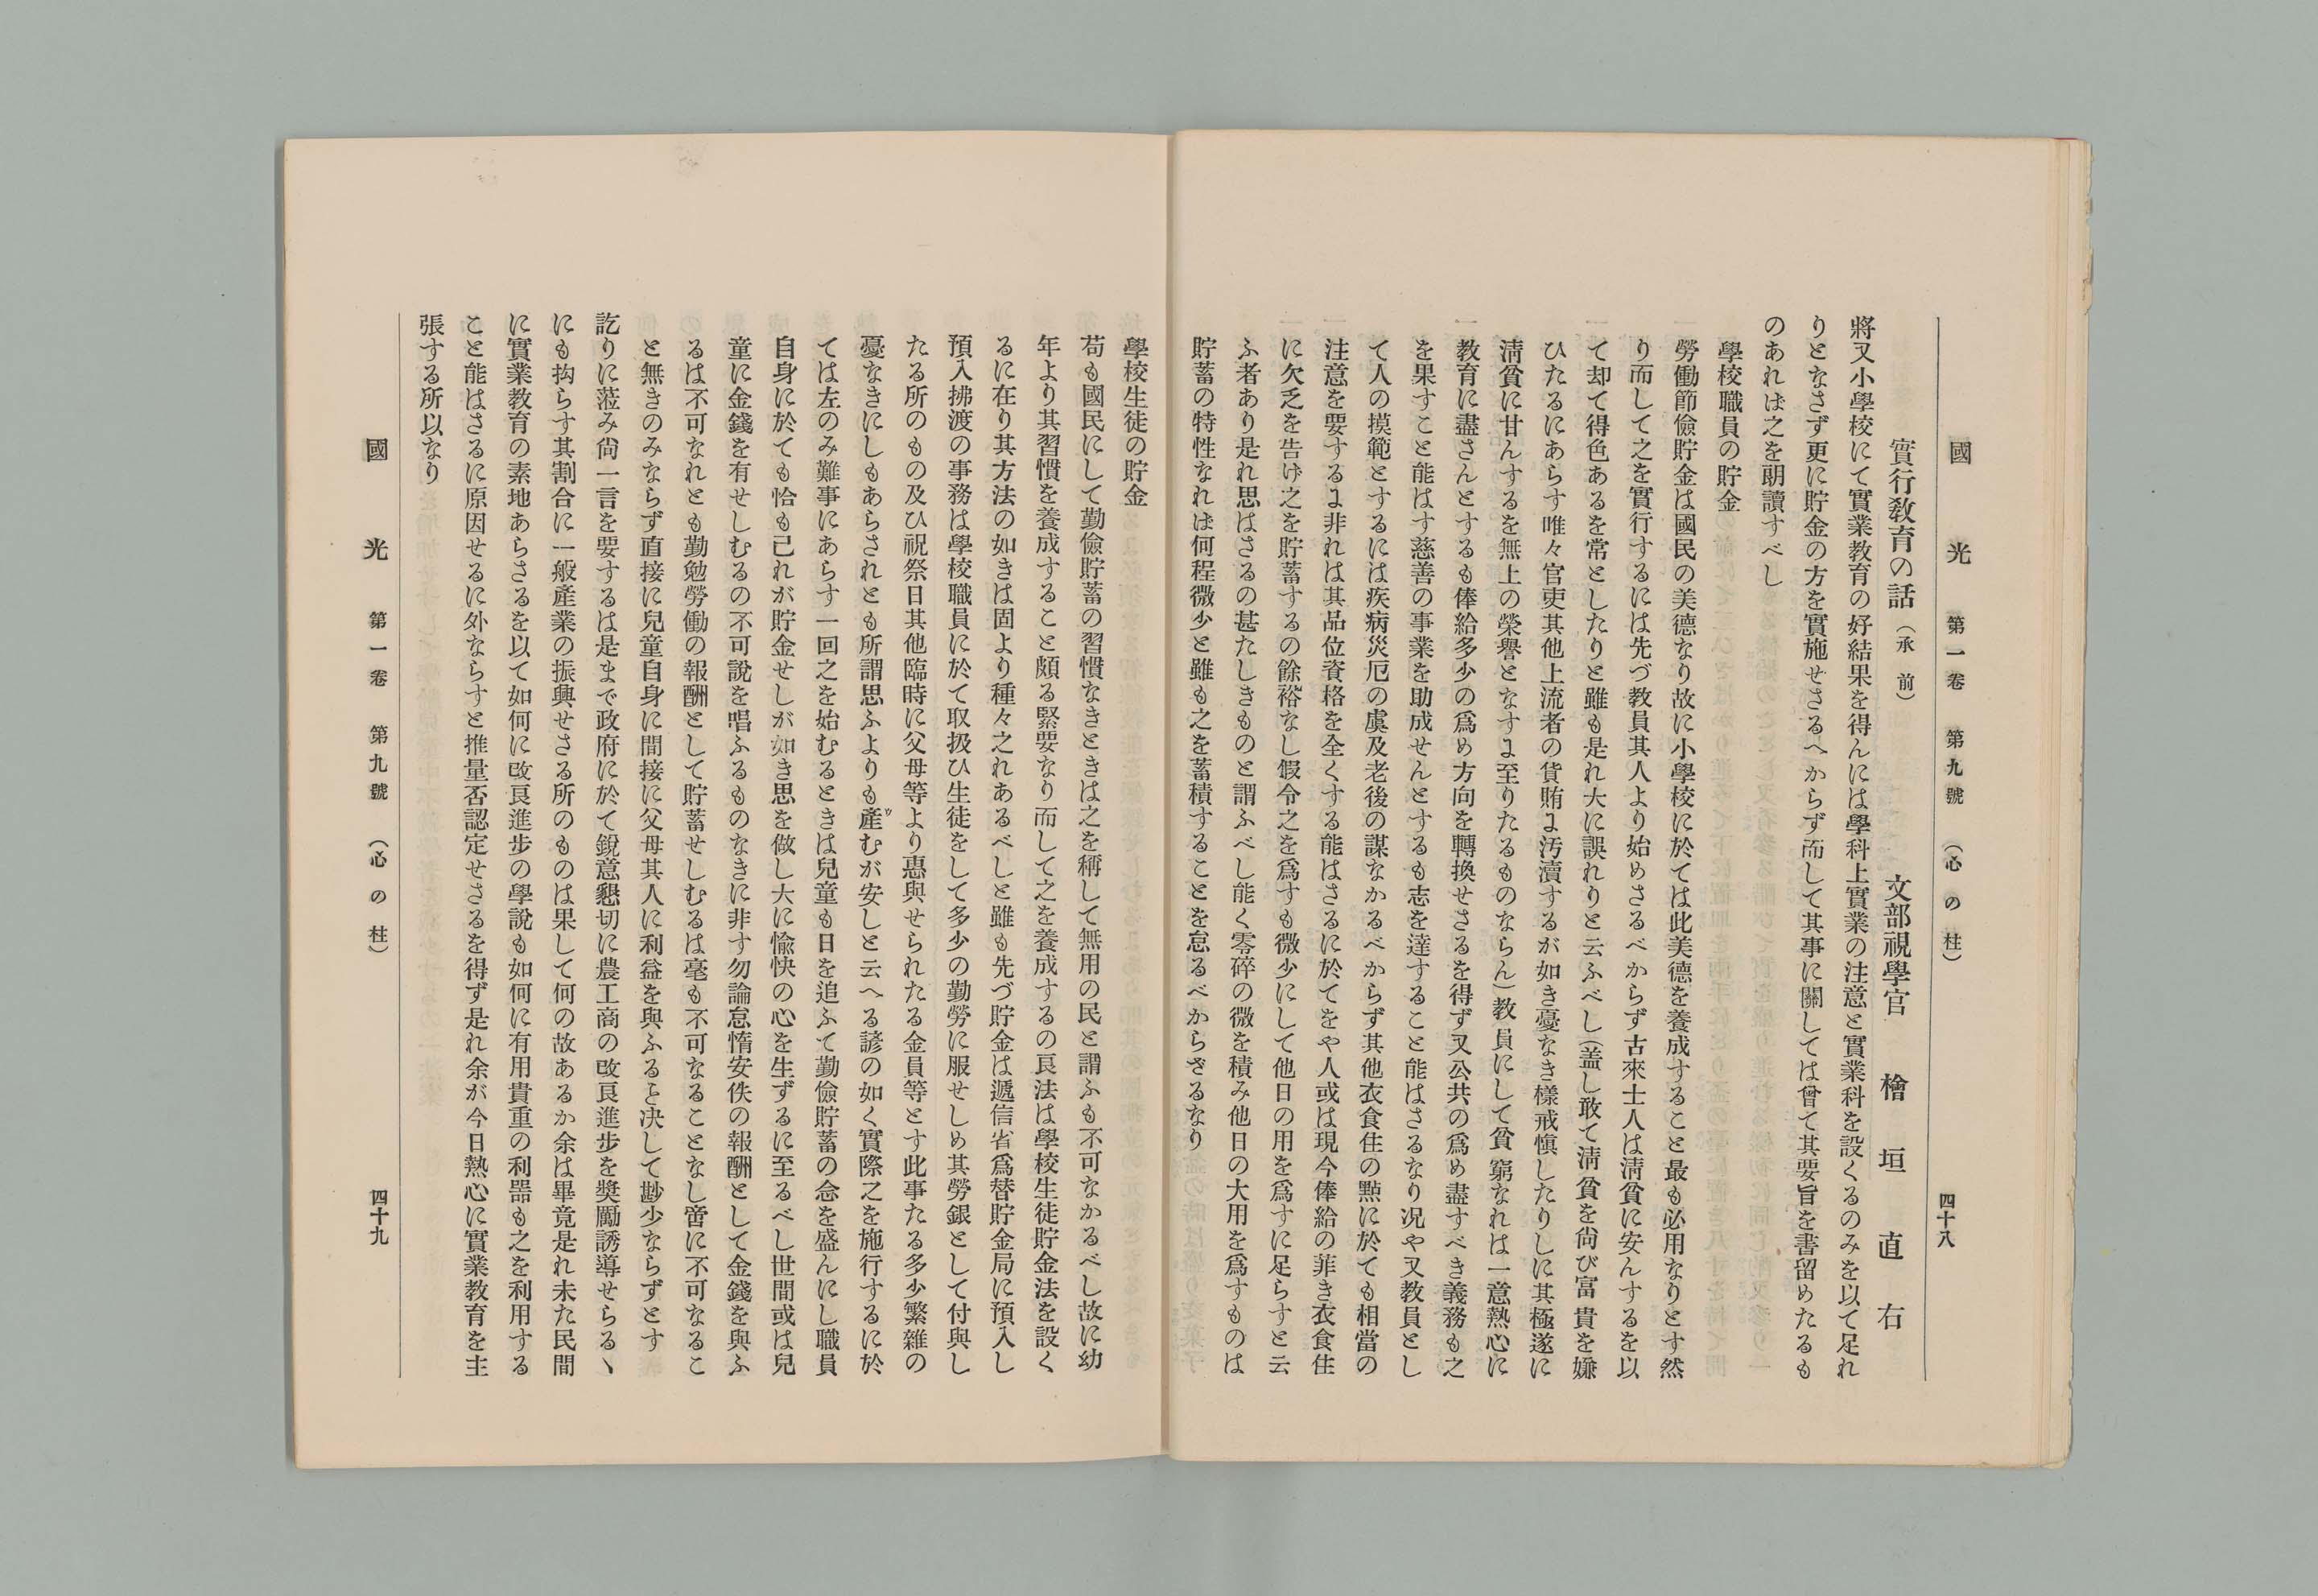 國光 第一卷 第九號 (心の柱) 四十八
實行敎育の話(承前) 文部視學官 檜垣直右
將又小學校にて實業敎育の好結果を得んには學科上實業の注意と實業科を設くるのみを以て足れ
りとなさず更に貯金の方を實施せさるへからず而して其事に關しては曾て其要旨を書留めたるも
のあれは之を朗讀すべし
學校職員の貯金
一 勞働節儉貯金は國民の美德なり故に小學校に於ては此美德を養成すること最も必用なりとす然
り而して之を實行するには先づ敎員其人より始めさるべからず古來士人は淸貧に安んするを以
て却て得色あるを常としたりと雖も是れ大に誤れりと云ふべし(盖し敢て淸貧を尙び富貴を嫌
ひたるにあらす唯々官吏其他上流者の貨賄に汚瀆するが如き憂なき樣戒愼したりしに其極遂に
淸貧に甘んするを無上の榮譽となすに至りたるものならん)敎員にして貧窮なれは一意熱心に
敎育に盡さんとするも俸給多少の爲め方向を轉換せさるを得ず又公共の爲め盡すべき義務も之
を果すこと能はす慈善の事業を助成せんとするも志を達すること能はさるなり况や又敎員とし
て人の摸範とするには疾病災厄の虞及老後の謀なかるべからず其他衣食住の㸃に於ても相當の
注意を要するに非れは其品位資格を全くする能はさるに於てをや人或は現今俸給の菲き衣食住
に欠乏を告け之を貯蓄するの餘裕なし假令之を爲すも微少にして他日の用を爲すに足らすと云
ふ者あり是れ思はさるの甚たしきものと謂ふべし能く零碎の微を積み他日の大用を爲すものは
貯蓄の特性なれは何程微少と雖も之を蓄積することを怠るべからざるなり
學校生徒の貯金
苟も國民にして勤儉貯蓄の習慣なきときは之を稱して無用の民と謂ふも不可なかるべし故に幼
年より其習慣を養成すること頗る緊要なり而して之を養成するの良法は學校生徒貯金法を設く
るに在り其方法の如きは固より種々之れあるべしと雖も先づ貯金は遞信省爲替貯金局に預入し
預入拂渡の事務は學校職員に於て取扱ひ生徒をして多少の勤勞に服せしめ其勞銀として付與し
たる所のもの及ひ祝祭日其他臨時に父母等より惠與せられたる金員等とす此事たる多少繁雜の
憂なきにしもあらされとも所謂思ふよりも產むが安しと云へる諺の如く實際之を施行するに於
ては左のみ難事にあらす一回之を始むるときは兒童も日を追ふて勤儉貯蓄の念を盛んにし職員
自身に於ても恰も己れが貯金せしが如き思を做し大に愉快の心を生ずるに至るべし世間或は兒
童に金錢を有せしむるの不可說を唱ふるものなきに非す勿論怠惰安佚の報酬として金錢を與ふ
るは不可なれとも勤勉勞働の報酬として貯蓄せしむるは毫も不可なることなし啻に不可なるこ
と無きのみならず直接に兒童自身に間接に父母其人に利益を與ふると决して尠少ならずとす
訖りに蒞み尙一言を要するは是まで政府に於て銳意懇切に農工商の改良進步を奬勵誘導せらるヽ
にも拘らす其割合に一般產業の振興せさる所のものは果して何の故あるか余は畢竟是れ未た民間
に實業敎育の素地あらさるを以て如何に改良進步の學說も如何に有用貴重の利器も之を利用する
こと能はさるに原因せるに外ならすと推量否認定せさるを得ず是れ余が今日熱心に實業敎育を主
張する所以なり
國光 第一卷 第九號 (心の柱) 四十九